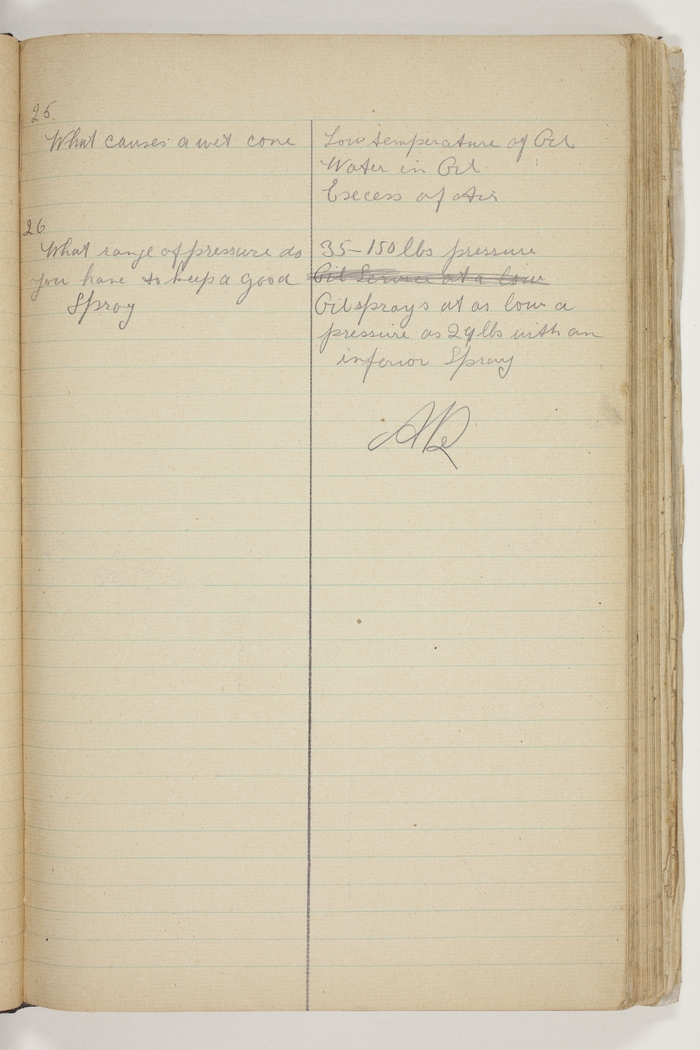 25.
What causes a wet cone
Low temperature of Oil
Water in Oil
Excess of Air
26
What range of pressure do
you have to keep a good
Spray
35-150 lbs pressure
Oil Service at a low
Oil sprays at as low a
pressure as 29 lbs with an
inferior Spray